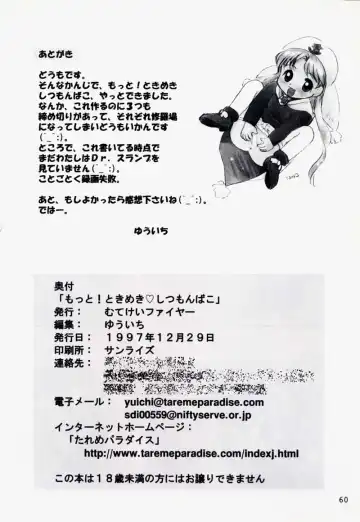 あとがき
どうもです。
そんなかんじで、もっと！ときめき
しつもんばこ、やっとできました。
なんか、これ作るのに３つも
締め切りがあって、それぞれ修羅場
になってしまいどうもいかんです
(´_｀;)。
ところで、これ書いてる時点で
まだわたしはＤｒ．スランプを
見ていません(´_｀;)。
ことごとく録画失敗。
あと、もしよかったら感想下さいね(´_｀;)。
ではー。
ゆういち
奥付
「もっと！ときめき♡しつもんばこ」
発行： むてけいファイヤー
編集： ゆういち
発行日： １９９７年１２月２９日
印刷所： サンライズ
連絡先：
電子メール： yuichi@taremeparadise.com
sdi00559@niftyserve.or.jp
インターネットホームページ：
「たれめパラダイス」
http://www.taremeparadise.com/indexj.html
この本は１８歳未満の方にはお譲りできません
60